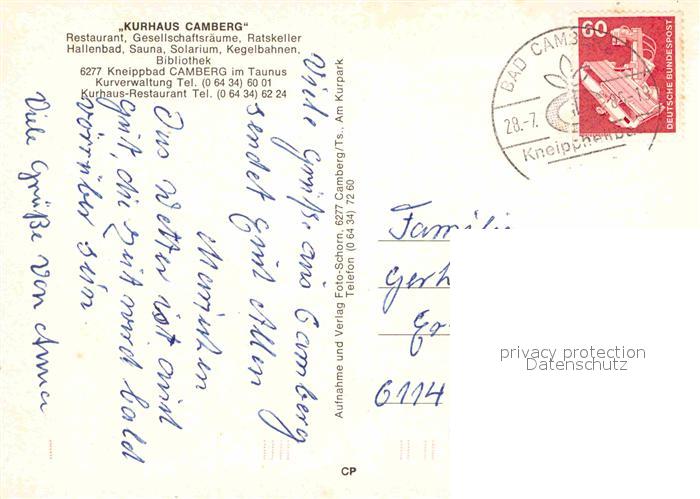 „KURHAUS CAMBERG“
Restaurant, Gesellschaftsräume, Ratskeller
Hallenbad, Sauna, Solarium, Kegelbahnen,
Bibliothek
6277 Kneippbad CAMBERG im Taunus
Kurverwaltung Tel. (0 64 34) 60 01
Kurhaus-Restaurant Tel. (0 64 34) 62 24
Viele Grüße aus Camberg
sendet Euch Allen
Das Wetter ist auch
gut, die Zeit wird bald
vorrüber sein.
Viele Grüße von Anna
Aufnahme und Verlag Foto-Schorn, 6277 Camberg/Ts., Am Kurpark
Telefon (0 64 34) 72 60
CP
60
DEUTSCHE BUNDESPOST
BAD CAMB
28.-7.
Kneippheilba
Familie
Gerh
6114
privacy protection
Datenschutz